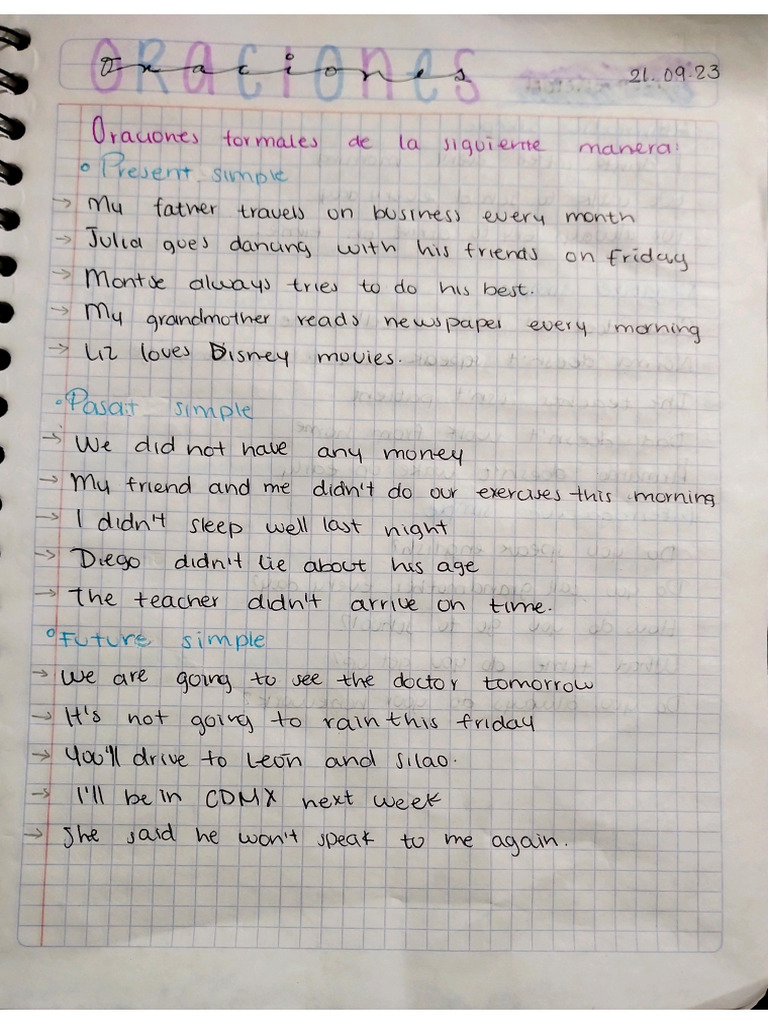 Oraciones
21.09.23
Oraciones formales de la siguiente manera:
° Present simple
→ My father travels on business every month
→ Julia goes dancing with his friends on Friday
→ Montse always tries to do his best.
→ My grandmother reads newspaper every morning
→ Liz loves Disney movies.
° Pasat simple
→ We did not have any money
→ My friend and me didn't do our exercises this morning
→ I didn't sleep well last night
→ Diego didn't lie about his age
→ The teacher didn't arrive on time.
° Future simple
→ We are going to see the doctor tomorrow
→ It's not going to rain this friday
→ You'll drive to León and Silao.
→ I'll be in CDMX next week
→ She said he won't speak to me again.